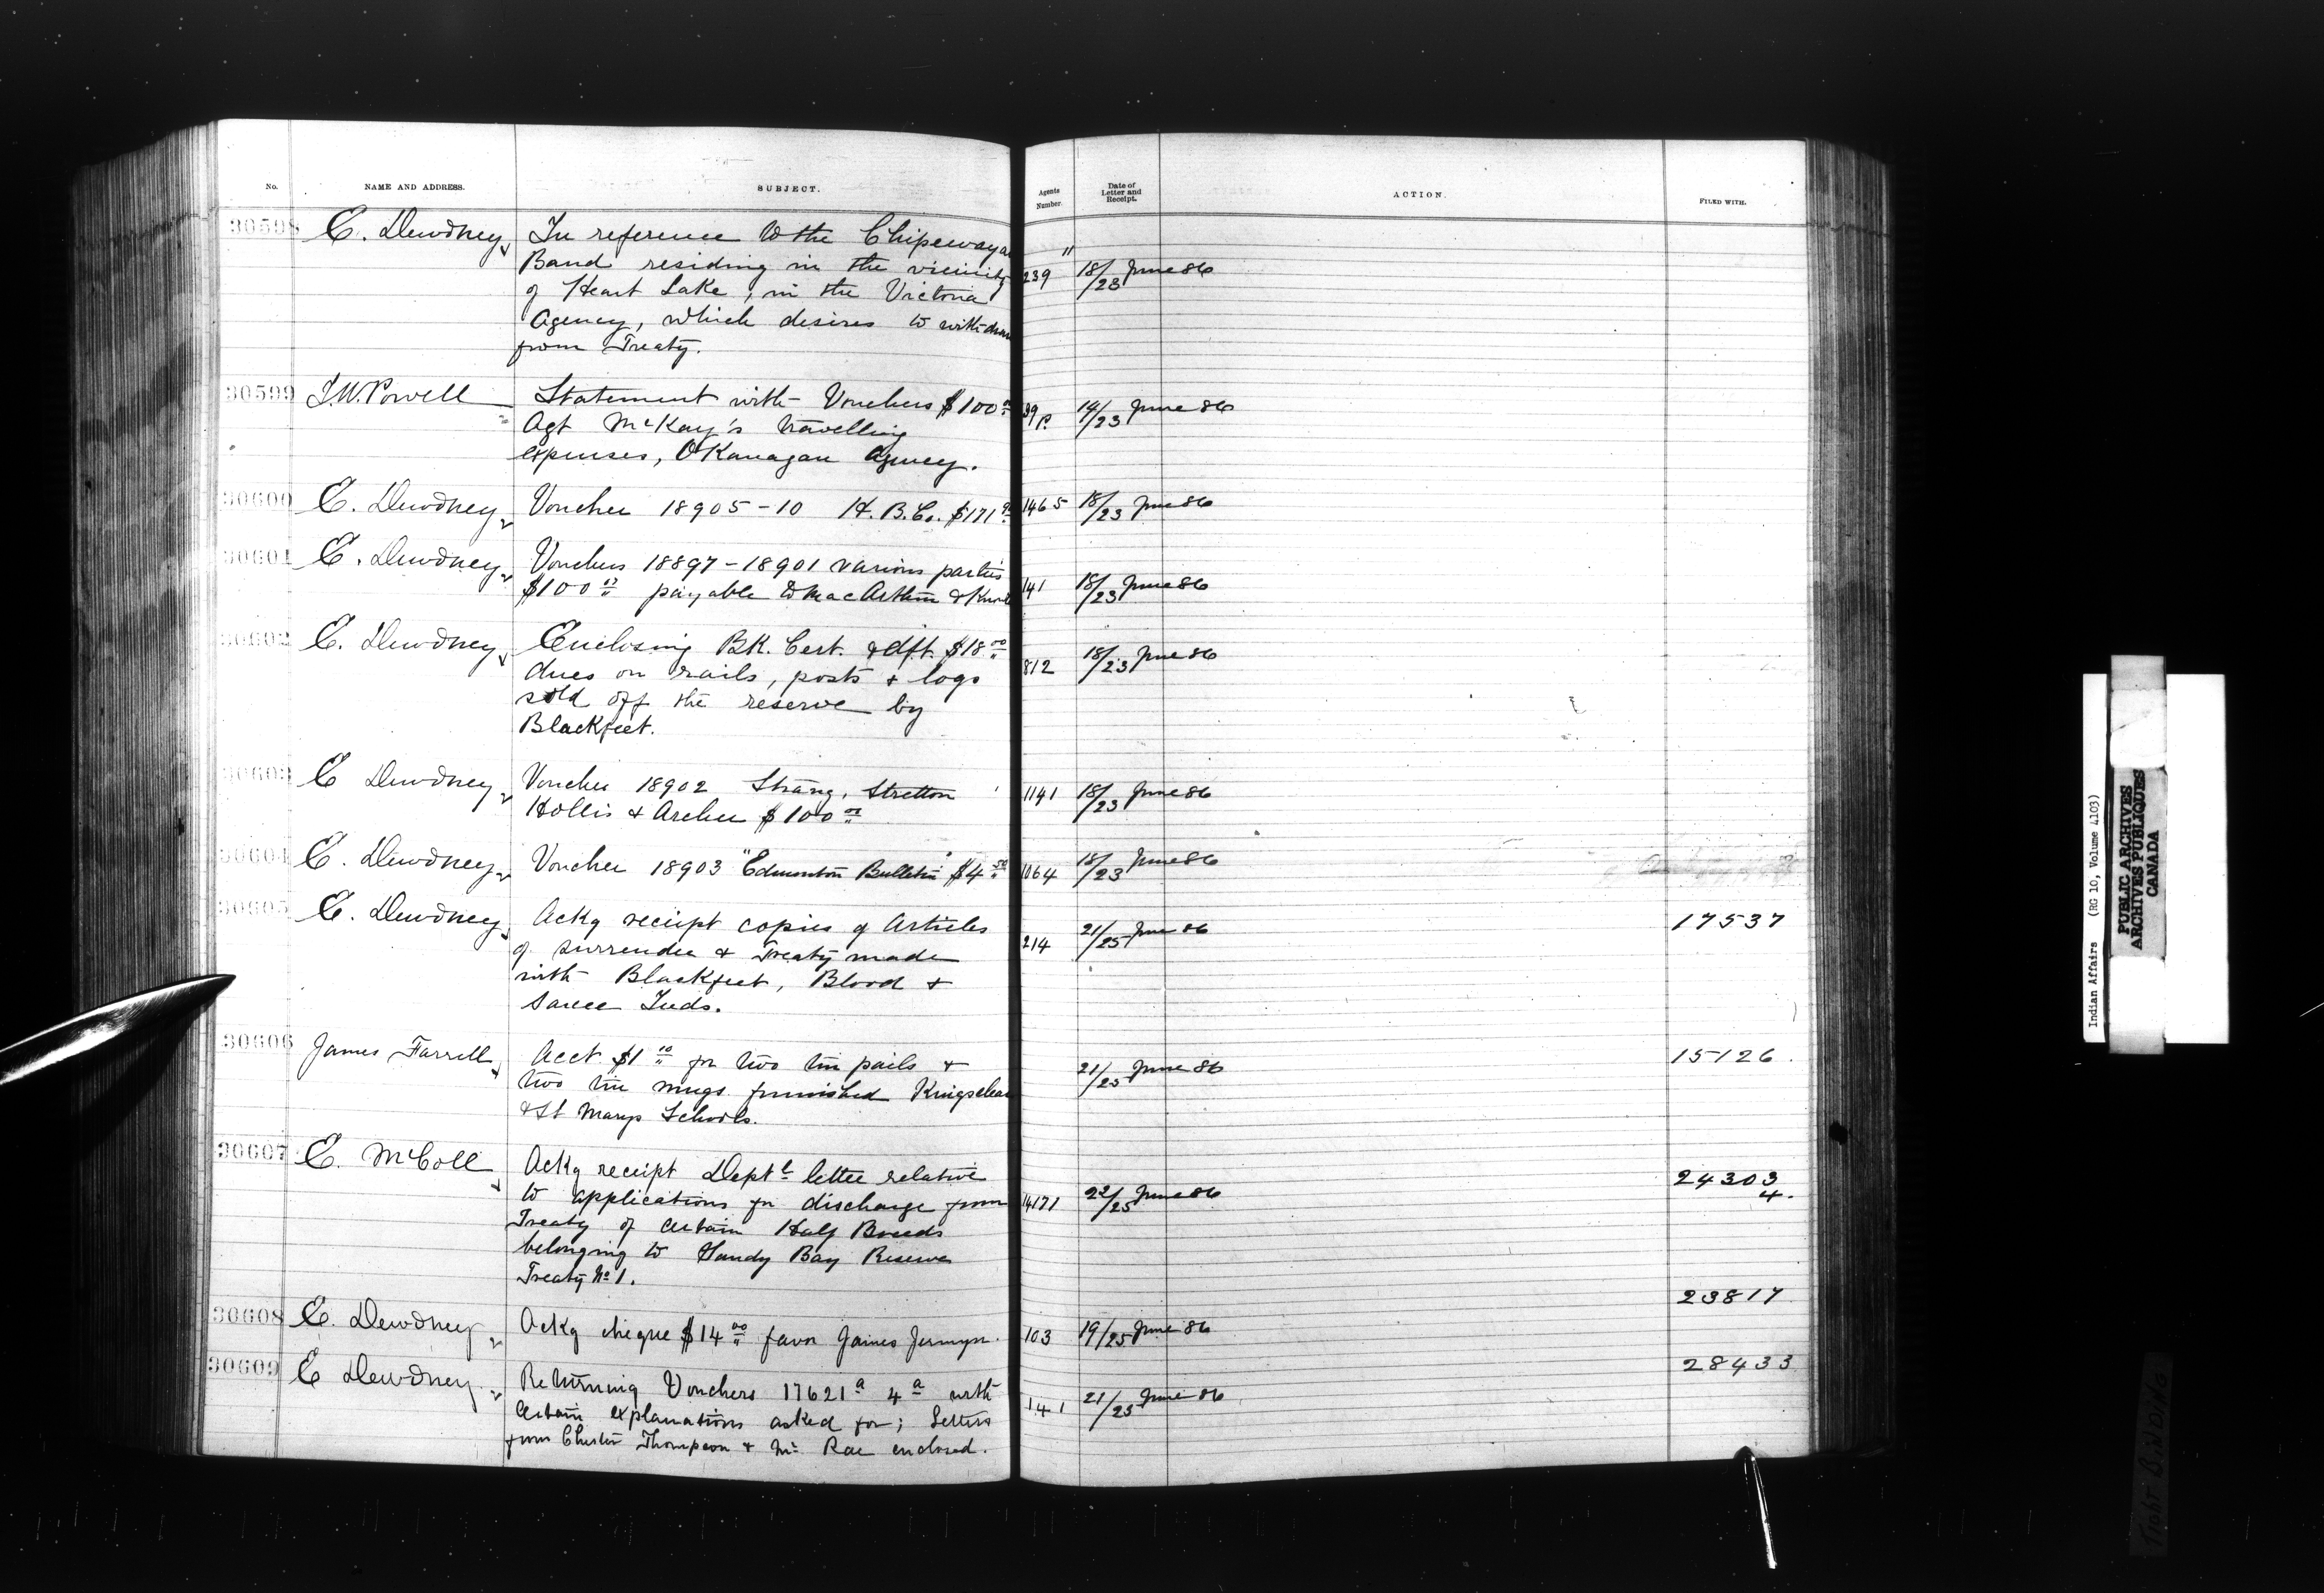 No. NAME AND ADDRESS. SUBJECT. Agents Number. Date of Letter and Receipt. ACTION. FILED WITH.
30598 E. Dewdney In reference to the Chipewayan "
Band residing in the vicinity 239 18/23 June 86
of Heart Lake, in the Victoria
Agency, which desires to withdraw
from Treaty.
30599 I.W. Powell Statement with Vouchers $100 39 P. 14/23 June 86
Agt McKay's travelling
expenses, OKanagan Agency.
30600 E. Dewdney Voucher 18905-10 H.B.Co. $171 1465 18/23 June 86
30601 E. Dewdney Vouchers 18897-18901 various parties
$100 payable to MacArthur & 141 18/23 June 86
30602 E. Dewdney Enclosing BK. Cert. & dft. $18 00
dues on rails, posts & logs 812 18/23 June 86
sold off the reserve by
Blackfeet.
30603 E Dewdney Voucher 18902 Strang, Stretton 1141 18/23 June 86
Hollis & Archer $100
30604 E. Dewdney Voucher 18903 "Edmonton Bulletin" $4 50 1064 18/23 June 86
30605 E. Dewdney Ackg receipt copies of Articles 17537
of surrender & Treaty made 214 21/25 June 86
with Blackfeet, Blood &
Sarcee Inds.
30606 James Farrell Acct $1 10 for two tin pails & 21/25 June 86 15126.
two tin mugs furnished Kingsclear
& St Marys Schools.
30607 E. McColl Ackg receipt Deptl letter relative 24303
to applications for discharge from 14171 22/25 June 86 4.
Treaty of certain Half Breeds
belonging to Sandy Bay Reserve
Treaty No 1.
23817
30608 E. Dewdney Ackg cheque $14 00 favor James Jermyn. 103 19/25 June 86
30609 E Dewdney Returning Vouchers 17621a 4a with 28433
certain explanations asked for; Letters 141 21/25 June 86
from Chester Thompson & Mc Rae enclosed.
Indian Affairs (RG 10, Volume 4103)
PUBLIC ARCHIVES
ARCHIVES PUBLIQUES
CANADA
Tight Binding